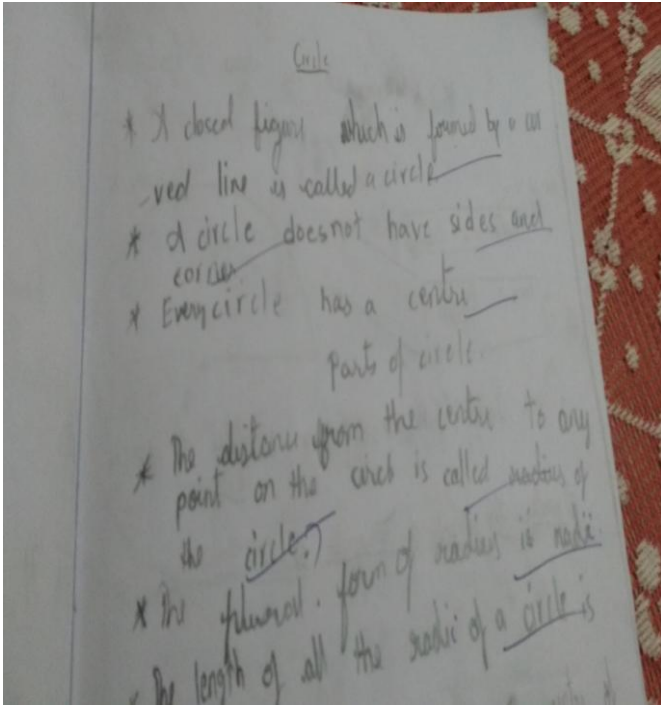 Circle
* A closed figure which is formed by a cur
ved line is called a circle
* A circle doesnot have sides and
corner
* Every circle has a centre
Parts of circle.
* The distance from the centre to any
point on the circle is called radius of
the circle.
* The plural form of radius is radii.
* The length of all the radii of a circle is